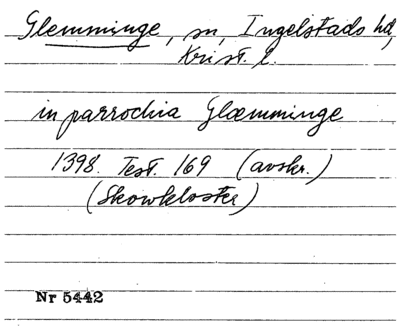 Glemminge, sn, Ingelstads hd,
Krist. l.
in parrochia Glæmminge
1398. Test. 169 (avskr.)
(Skowkloster)
Nr 5442